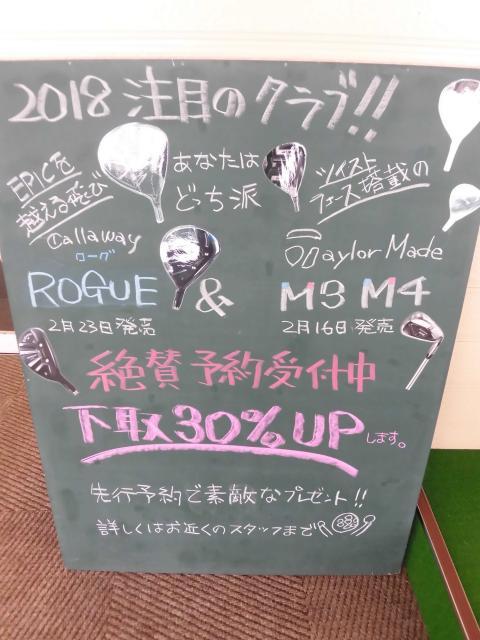 2018 注目のクラブ!!
EPICを
越える飛び
あなたは
どっち派
ツイスト
フェース搭載の
Callaway
ローグ
ROGUE
&
TaylorMade
M3 M4
2月23日発売
2月16日発売
絶賛予約受付中
下取30%UPします。
先行予約で素敵なプレゼント!!
詳しくはお近くのスタッフまで